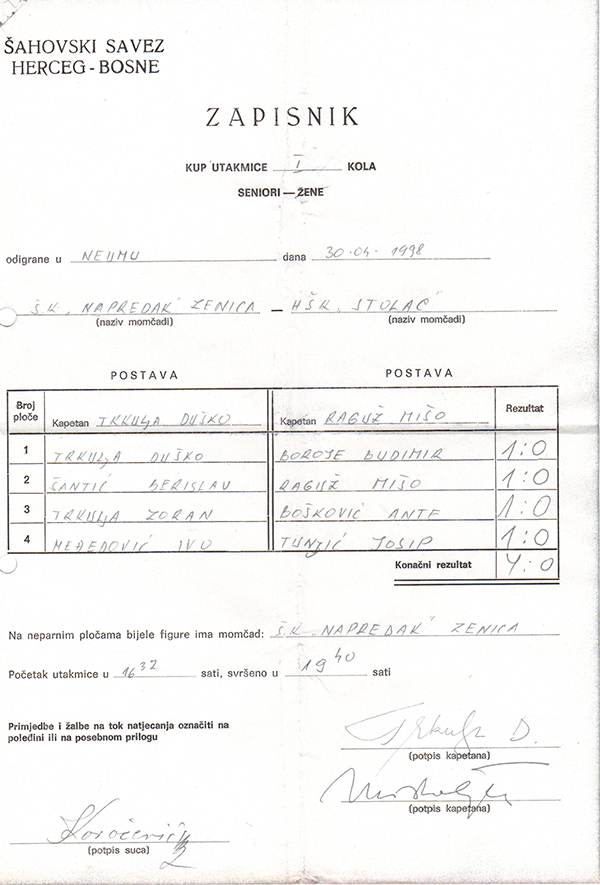 ŠAHOVSKI SAVEZ
HERCEG-BOSNE
ZAPISNIK
KUP UTAKMICE I KOLA
SENIORI — ŽENE
odigrane u NEUMU dana 30.04.1998
Š.K. „NAPREDAK" ZENICA — HŠK. „STOLAC"
(naziv momčadi) (naziv momčadi)
POSTAVA POSTAVA
Broj ploče Kapetan TRKULJA DUŠKO Kapetan RAGUŽ MIŠO Rezultat
1 TRKULJA DUŠKO BOROJE BUDIMIR 1:0
2 ŠANTIĆ BERISLAV RAGUŽ MIŠO 1:0
3 TRKULJA ZORAN BOŠKOVIĆ ANTE 1:0
4 MEĐEDOVIĆ IVO TUNJIĆ JOSIP 1:0
Konačni rezultat 4:0
Na neparnim pločama bijele figure ima momčad: Š.K. „NAPREDAK" ZENICA
Početak utakmice u 16 32 sati, svršeno u 19 40 sati
Primjedbe i žalbe na tok natjecanja označiti na
poleđini ili na posebnom prilogu
Trkulja D.
(potpis kapetana)
(potpis kapetana)
(potpis suca)